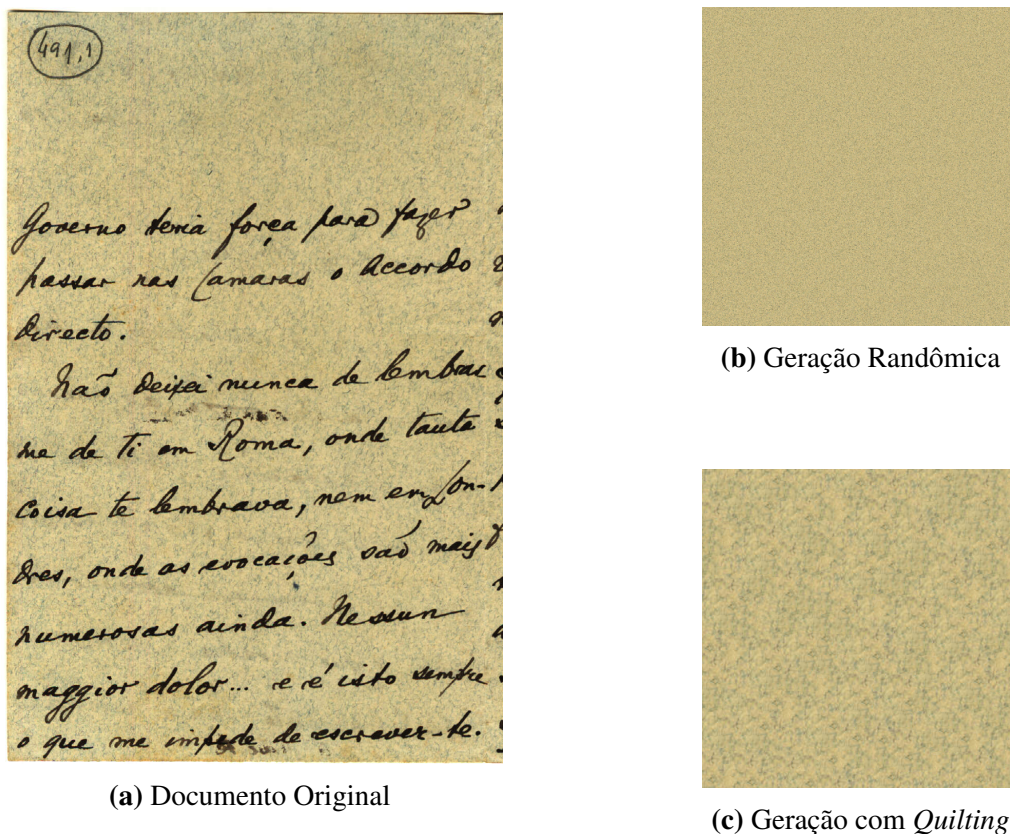 491,1
Governo teria força para fazer
passar nas Camaras o Accordo
directo.
Não deixei nunca de lembrar
me de ti em Roma, onde tanta
coisa te lembrava, nem em Lon-
dres, onde as evocações são mais
numerosas ainda. Nessun
maggior dolor... e é isto sempre
o que me impede de escrever-te.
(a) Documento Original
(b) Geração Randômica
(c) Geração com Quilting